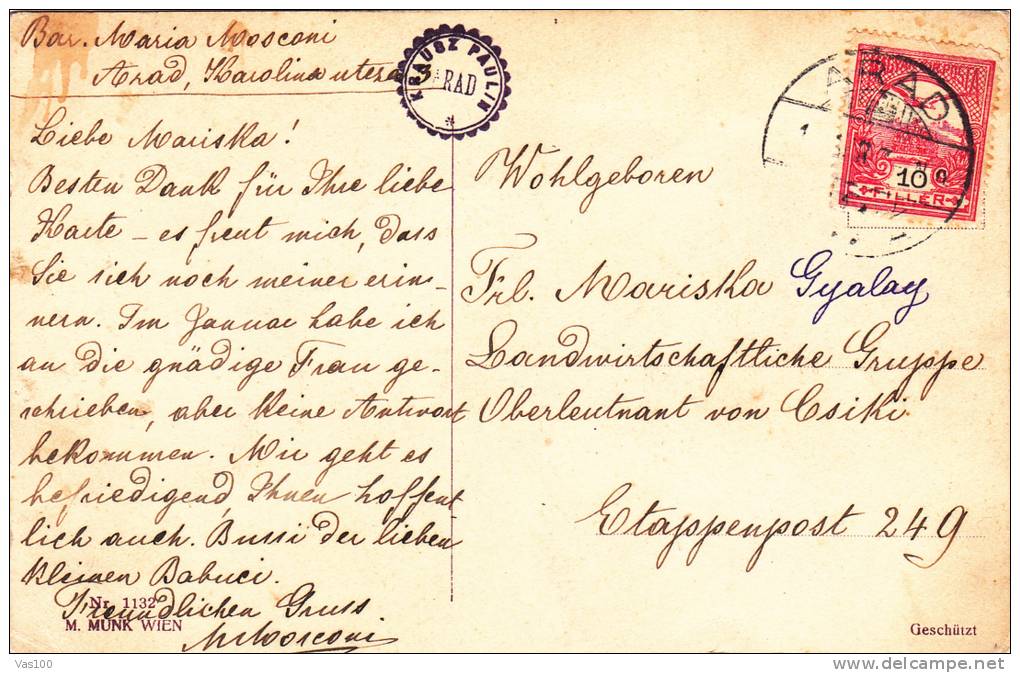 Bar. Maria Mosconi
Arad, Karolina utca 3
KRAUSZ PAULIN
ARAD
*
Liebe Mariska!
Besten Dank für Ihre liebe
Karte – es freut mich, dass
Sie sich noch meiner erin-
nern. Im Januar habe ich
an die gnädige Frau ge-
schrieben, aber keine Antwort
bekommen. Mir geht es
befriedigend, Ihnen hoffent
lich auch. Bussi der lieben
kleinen Babuci.
Freundlichen Gruss
MMosconi
Nr. 1132
M. MUNK WIEN
ARAD
10
FILLER
Wohlgeboren
Frl. Mariska Gyalay
Landwirtschaftliche Gruppe
Oberleutnant von Csiki
Etappenpost 249
Geschützt
Vas100
www.delcampe.net